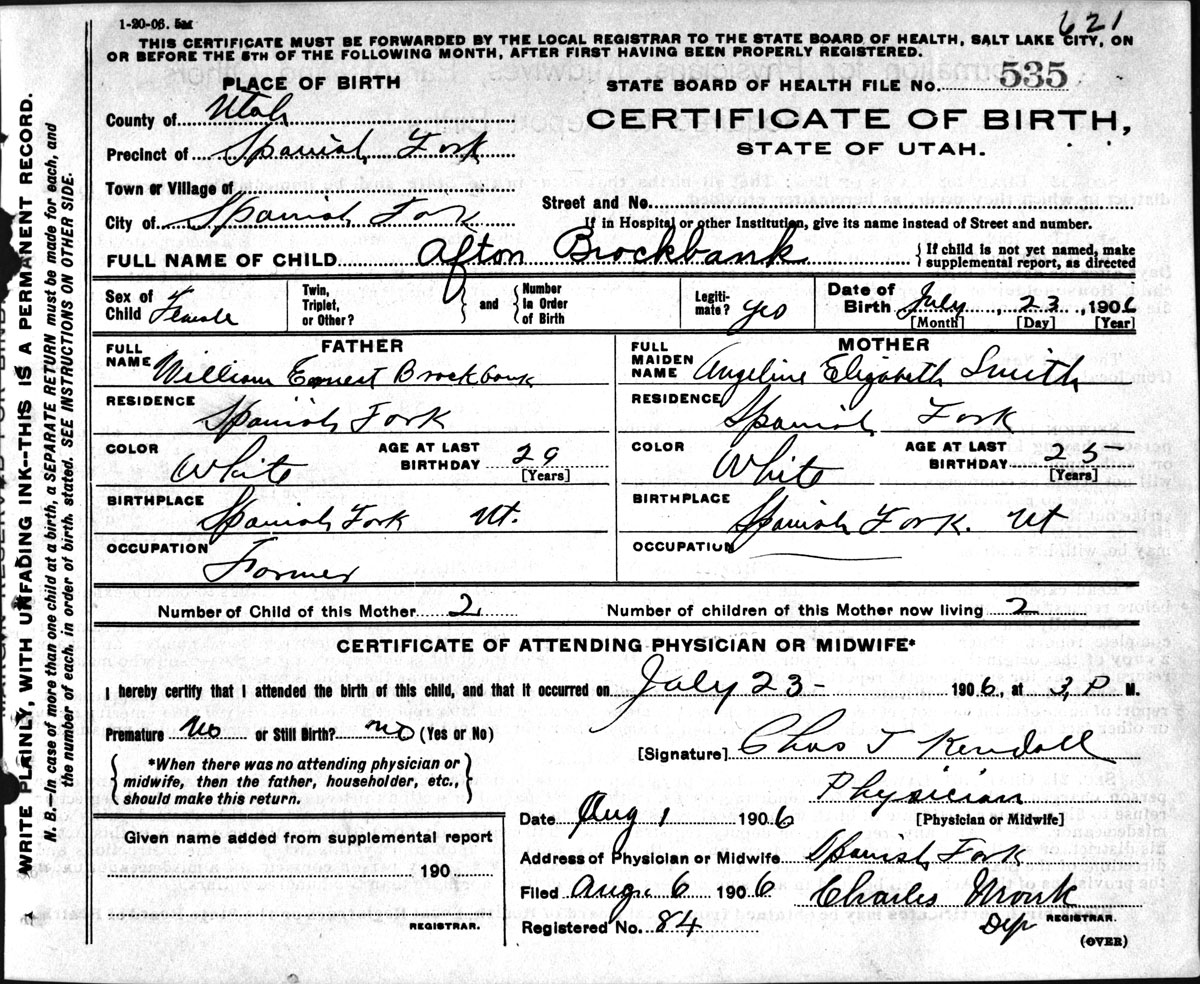 1-20-06. 5M
621
THIS CERTIFICATE MUST BE FORWARDED BY THE LOCAL REGISTRAR TO THE STATE BOARD OF HEALTH, SALT LAKE CITY, ON
OR BEFORE THE 5TH OF THE FOLLOWING MONTH, AFTER FIRST HAVING BEEN PROPERLY REGISTERED.
PLACE OF BIRTH
STATE BOARD OF HEALTH FILE NO. 535
County of Utah
CERTIFICATE OF BIRTH,
Precinct of Spanish Fork
STATE OF UTAH.
Town or Village of
City of Spanish Fork
Street and No.
If in Hospital or other Institution, give its name instead of Street and number.
FULL NAME OF CHILD Afton Brockbank { If child is not yet named, make
supplemental report, as directed
Sex of Child Female
Twin, Triplet, or Other?
and
Number in Order of Birth
Legiti-mate? yes
Date of Birth July 23, 1906
[Month] [Day] [Year]
FATHER
FULL NAME William Earnest Brockbank
RESIDENCE
Spanish Fork
COLOR White AGE AT LAST BIRTHDAY 29
[Years]
BIRTHPLACE
Spanish Fork Ut.
OCCUPATION
Farmer
MOTHER
FULL MAIDEN NAME Angeline Elizabeth Smith
RESIDENCE
Spanish Fork
COLOR White AGE AT LAST BIRTHDAY 25
[Years]
BIRTHPLACE
Spanish Fork. Ut
OCCUPATION
Number of Child of this Mother 2 Number of children of this Mother now living 2
CERTIFICATE OF ATTENDING PHYSICIAN OR MIDWIFE*
I hereby certify that I attended the birth of this child, and that it occurred on July 23- 1906, at 3 P M.
Premature No or Still Birth? no (Yes or No)
[Signature] Chas T Kendall
{ *When there was no attending physician or
midwife, then the father, householder, etc.,
should make this return. }
Physician
Date Aug 1 1906 [Physician or Midwife]
Given name added from supplemental report
190
REGISTRAR.
Address of Physician or Midwife Spanish Fork
Filed Aug. 6 1906 Charles Monk
Registered No. 84 Dep REGISTRAR.
(OVER)
WRITE PLAINLY, WITH UNFADING INK--THIS IS A PERMANENT RECORD.
N. B.--In case of more than one child at a birth, a SEPARATE RETURN must be made for each, and
the number of each, in order of birth, stated. SEE INSTRUCTIONS ON OTHER SIDE.